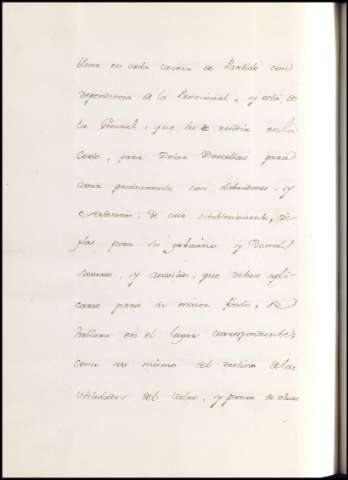 blece en cada caveza de Partido con
dependencia de la Provincial, y esta de
la General, que ha de residir en la
Corte, para Dotar Doncellas para
casar precisamente con Labradores, y
Artesanos; de cuio establecimiento, Re-
glas para su gobierno y Demas
y auxilios, que deben apli-
carse para su maior fondo, se
hablara en el lugar correspondiente,
como asi mismo del destino de las
Utilidades del y para de otras